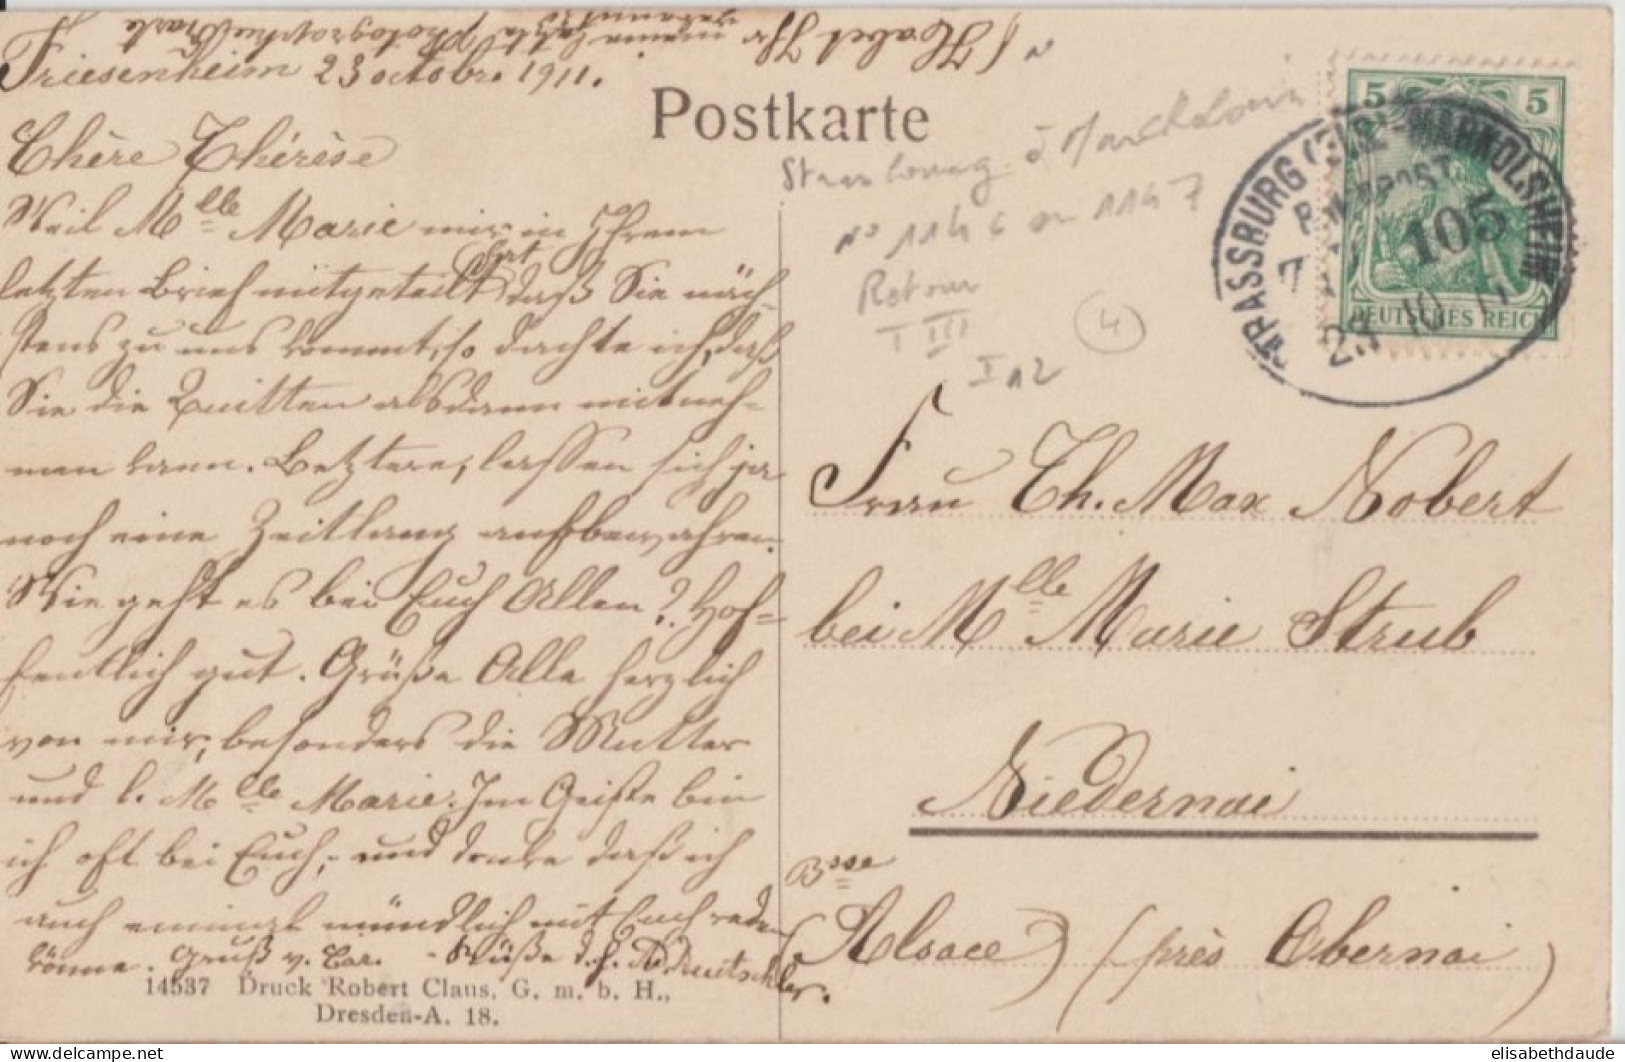 (Habet Ihr meine letzte Photographiekarte
Friesenheim 23 octobre 1911.
Postkarte
Chère Thérèse
Weil Mlle Marie mir in Ihrem
letzten Brief mitgeteilt hat daß Sie näch-
stens zu uns kommt, so dachte ich, daß
Sie die Quitten alsdann mitneh-
men kann. Letztere, lassen sich ja
noch eine Zeitlang aufbewahren.
Wie geht es bei Euch Allen? Hof-
fentlich gut. Grüße Alle herzlich
von mir, besonders die Mutter
und l. Mlle Marie. Im Geiste bin
ich oft bei Euch, und denke daß ich
auch einmal mündlich mit Euch reden
könne. Gruß v.
14537 Druck Robert Claus, G. m. b. H.,
Dresden-A. 18.
Strasbourg à Marckolsheim
No 1146 ou 1147
Retour
I III
I 12
4
5 5
DEUTSCHES REICH
STRASSBURG (ELS)-MARKOLSHEIM
BAHNPOST
105
23 10 11
Frau Th. Max Nobert
bei Mlle Marie Strub
Niedernai
Bsse
(Alsace) (près Obernai)
elisabethdaude